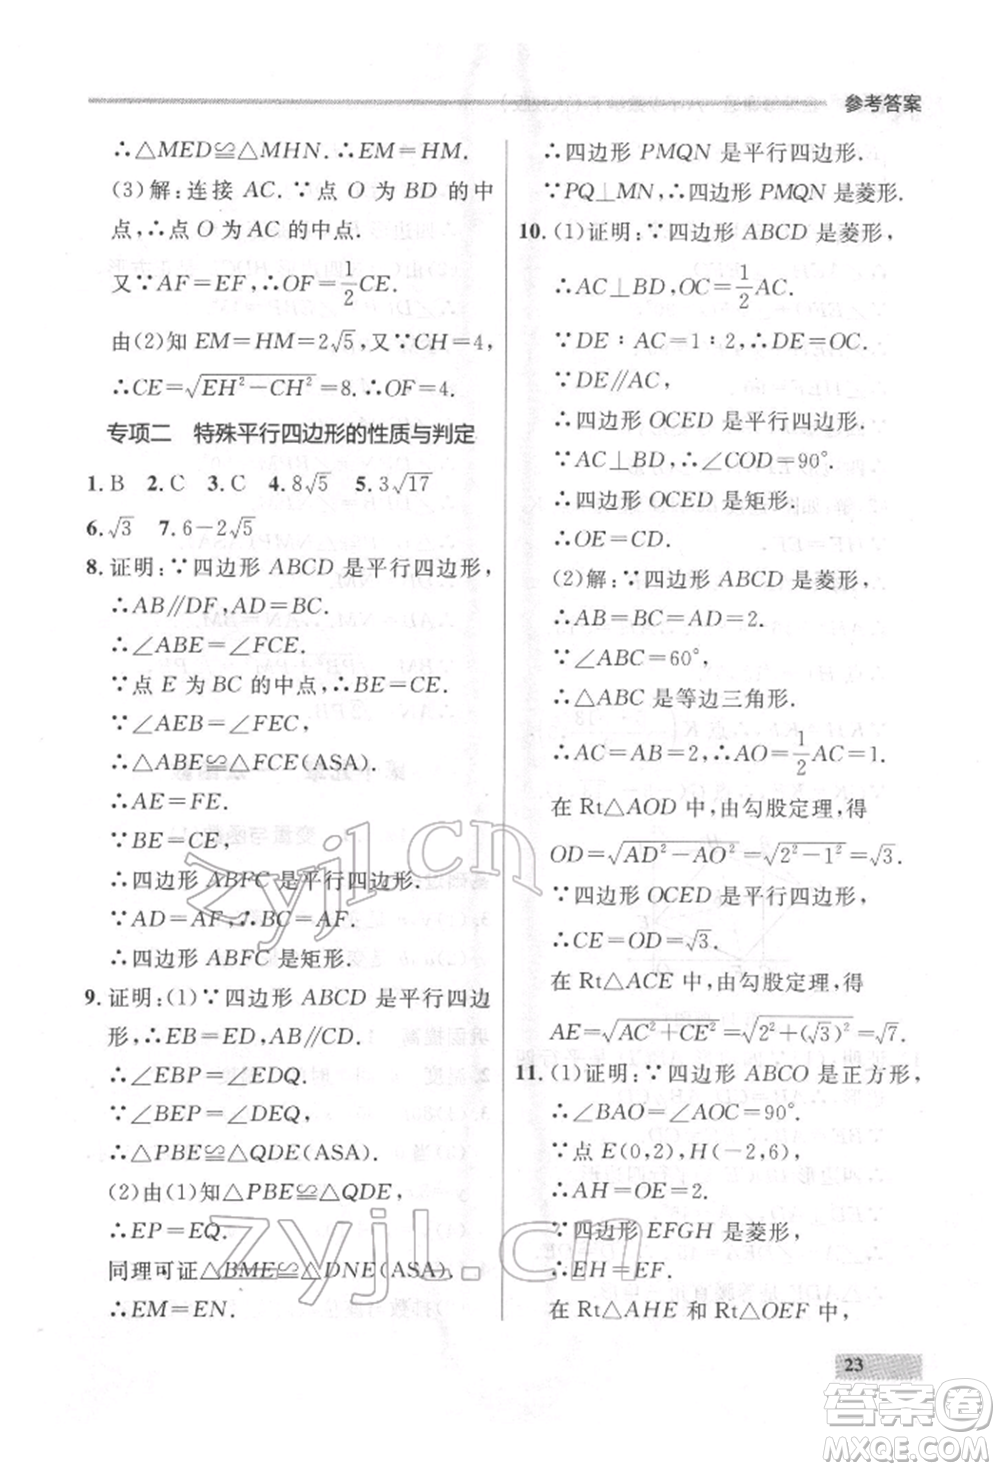 参考答案
∴△MED≌△MHN. ∴EM=HM.
(3)解:连接 AC. ∵点 O 为 BD 的中
点,∴点 O 为 AC 的中点.
又∵AF=EF,∴OF=1/2CE.
由(2)知 EM=HM=2√5,又∵CH=4,
∴CE=√(EH²-CH²)=8.∴OF=4.
专项二 特殊平行四边形的性质与判定
1.B 2.C 3.C 4.8√5 5.3√17
6.√3 7.6-2√5
8.证明:∵四边形 ABCD 是平行四边形,
∴AB∥DF,AD=BC.
∴∠ABE=∠FCE.
∵点 E 为 BC 的中点,∴BE=CE.
∵∠AEB=∠FEC,
∴△ABE≌△FCE(ASA).
∴AE=FE.
∵BE=CE,
∴四边形 ABFC 是平行四边形.
∵AD=AF,∴BC=AF.
∴四边形 ABFC 是矩形.
9.证明:(1)∵四边形 ABCD 是平行四边
形,∴EB=ED,AB∥CD.
∴∠EBP=∠EDQ.
∵∠BEP=∠DEQ,
∴△PBE≌△QDE(ASA).
(2)由(1)知△PBE≌△QDE,
∴EP=EQ.
同理可证△BME≌△DNE(ASA).
∴EM=EN.
∴四边形 PMQN 是平行四边形.
∵PQ⊥MN,∴四边形 PMQN 是菱形.
10.(1)证明:∵四边形 ABCD 是菱形,
∴AC⊥BD,OC=1/2AC.
∵DE∶AC=1∶2,∴DE=OC.
∵DE∥AC,
∴四边形 OCED 是平行四边形.
∵AC⊥BD,∴∠COD=90°.
∴四边形 OCED 是矩形.
∴OE=CD.
(2)解:∵四边形 ABCD 是菱形,
∴AB=BC=AD=2.
∵∠ABC=60°,
∴△ABC 是等边三角形.
∴AC=AB=2.∴AO=1/2AC=1.
在 Rt△AOD 中,由勾股定理,得
OD=√(AD²-AO²)=√(2²-1²)=√3.
∵四边形 OCED 是平行四边形,
∴CE=OD=√3.
在 Rt△ACE 中,由勾股定理,得
AE=√(AC²+CE²)=√(2²+(√3)²)=√7.
11.(1)证明:∵四边形 ABCO 是正方形,
∴∠BAO=∠AOC=90°.
∵点 E(0,2),H(-2,6),
∴AH=OE=2.
∵四边形 EFGH 是菱形,
∴EH=EF.
在 Rt△AHE 和 Rt△OEF 中,
23
zyjl.cn
zyjl.cn
答案圈
MXQE.COM